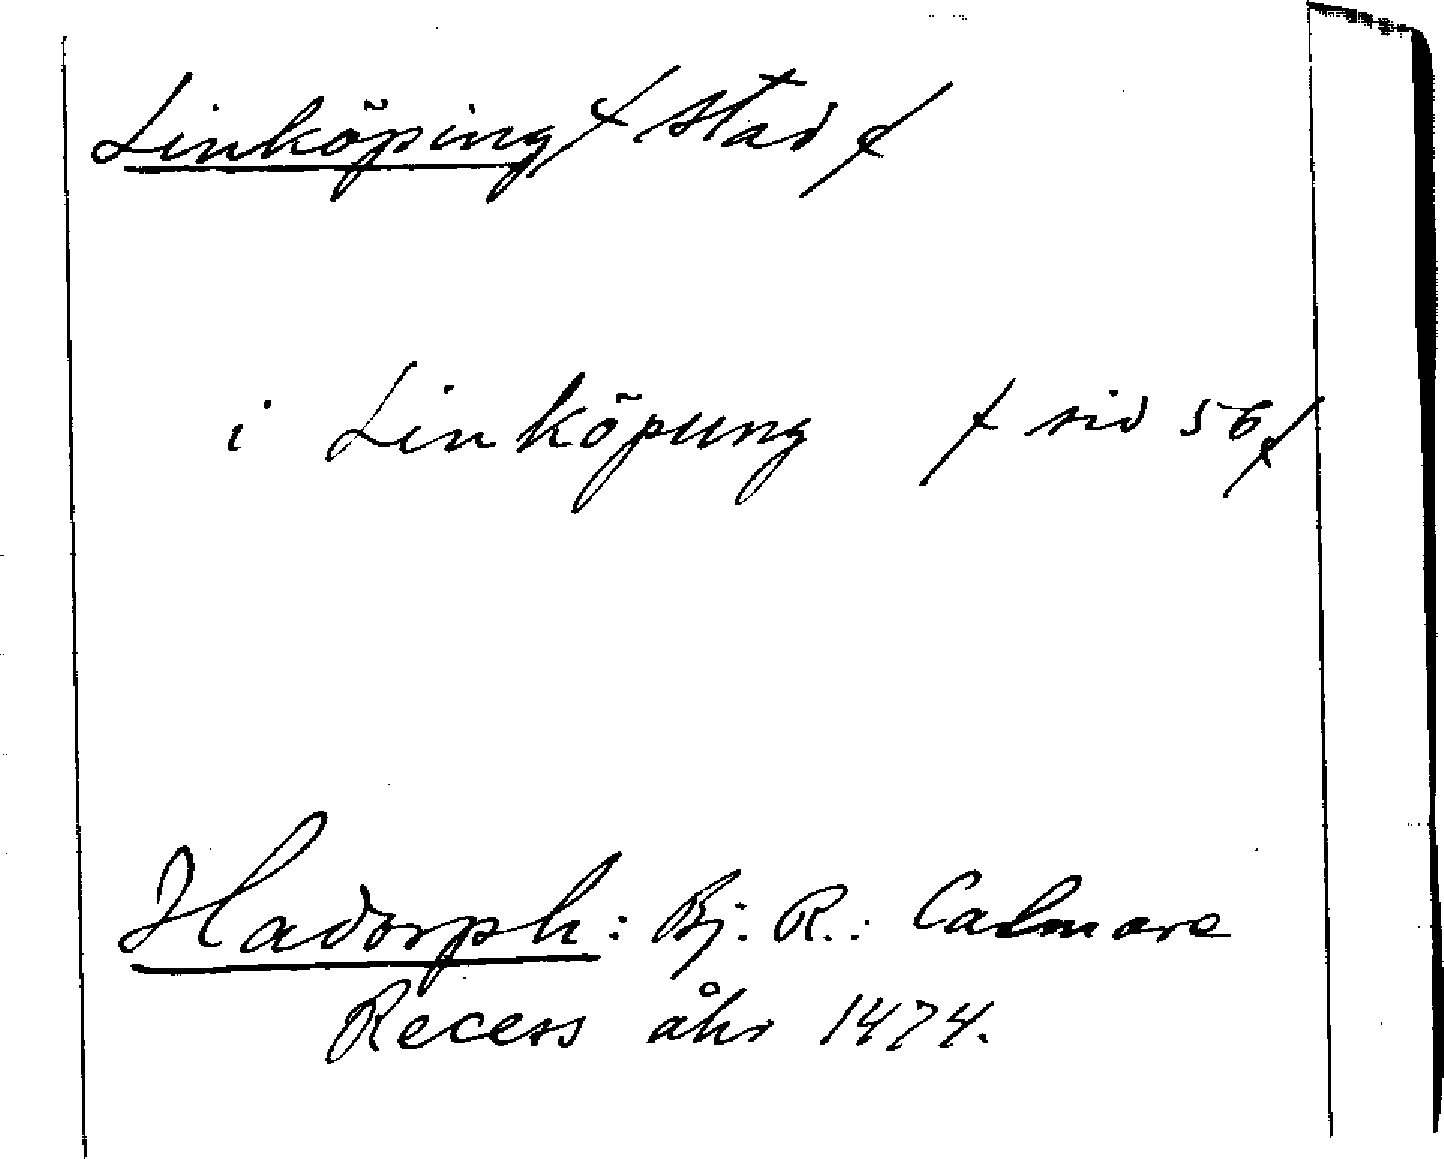 Linköping / stad /
i Linköpung / sid 56 /
Hadorph: Bj. R.: Calmare
Recess åhr 1474.